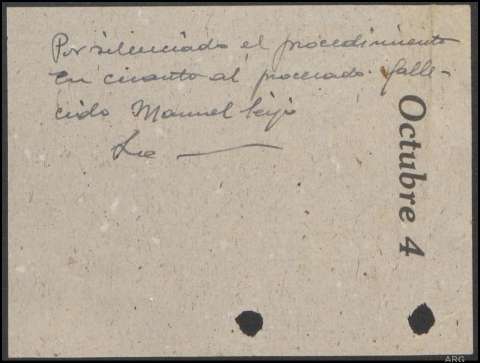 Por silenciado el procedimiento
en cuanto al procesado falle-
cido Manuel Seijo
Octubre 4
ARG